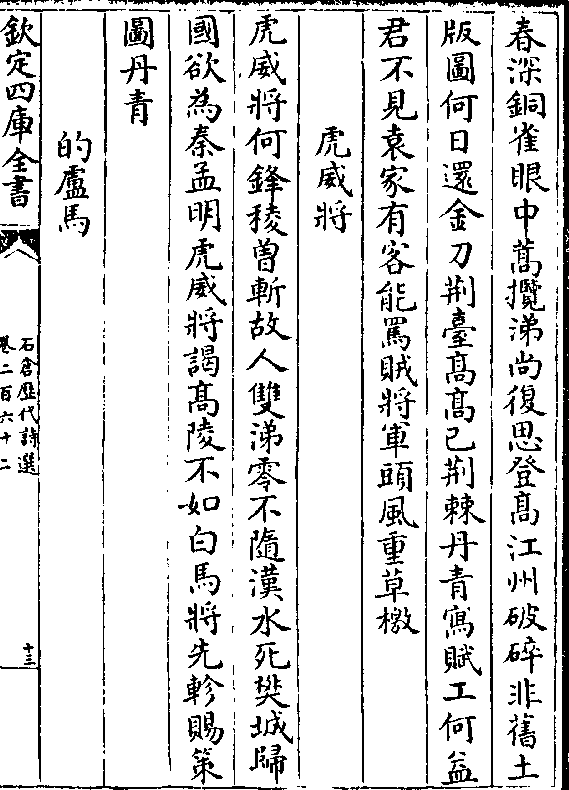 春深銅雀眼中蒿攬涕尚復思登髙江州破碎非舊土
版圖何日還金刀荆臺髙髙已荆棘丹青寫賦工何益
君不見袁家有客能罵賊將軍頭風重草檄
虎威將
虎威將何鋒稜曽斬故人雙涕零不隨漢水死樊城歸
國欲為秦孟明虎威將謁髙陵不如白馬將先軫賜策
圖丹青
的盧馬
欽定四庫全書
石倉歴代詩選
卷二百六十二
十三